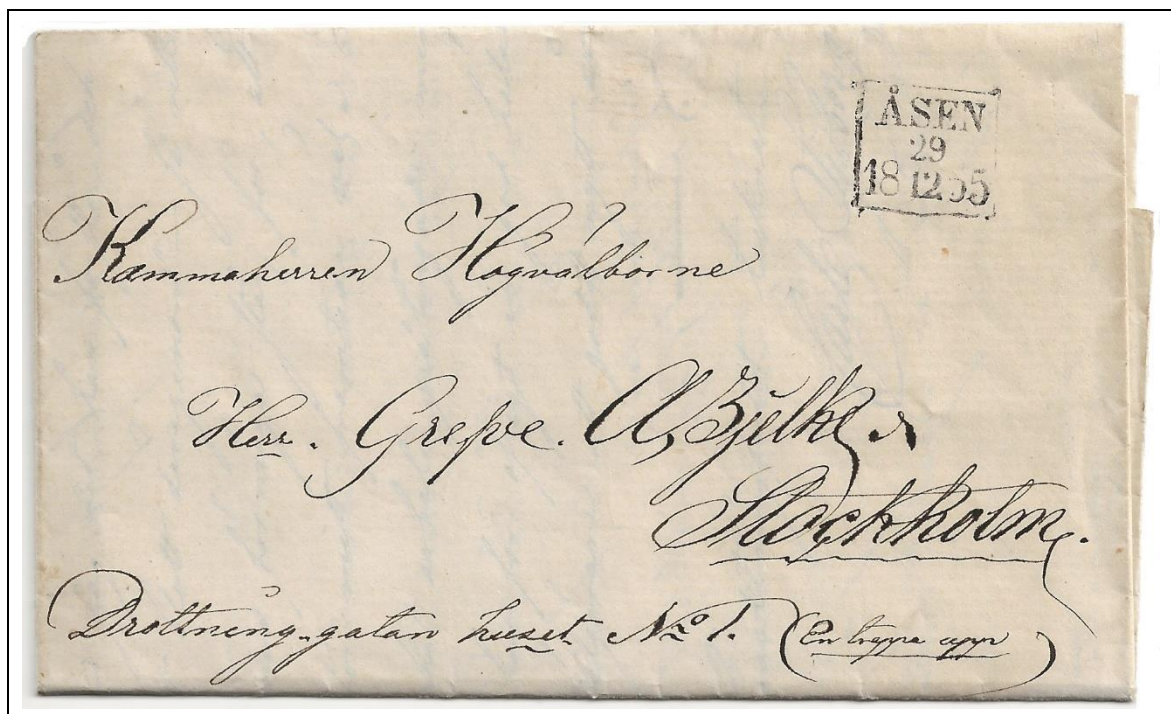 ÅSEN
29
18 12 55
Kammaherren Högvälborne
Herr. Grefve. A, Bjelke
Stockholm.
Drottning-gatan huset No 1. (En trappa upp)